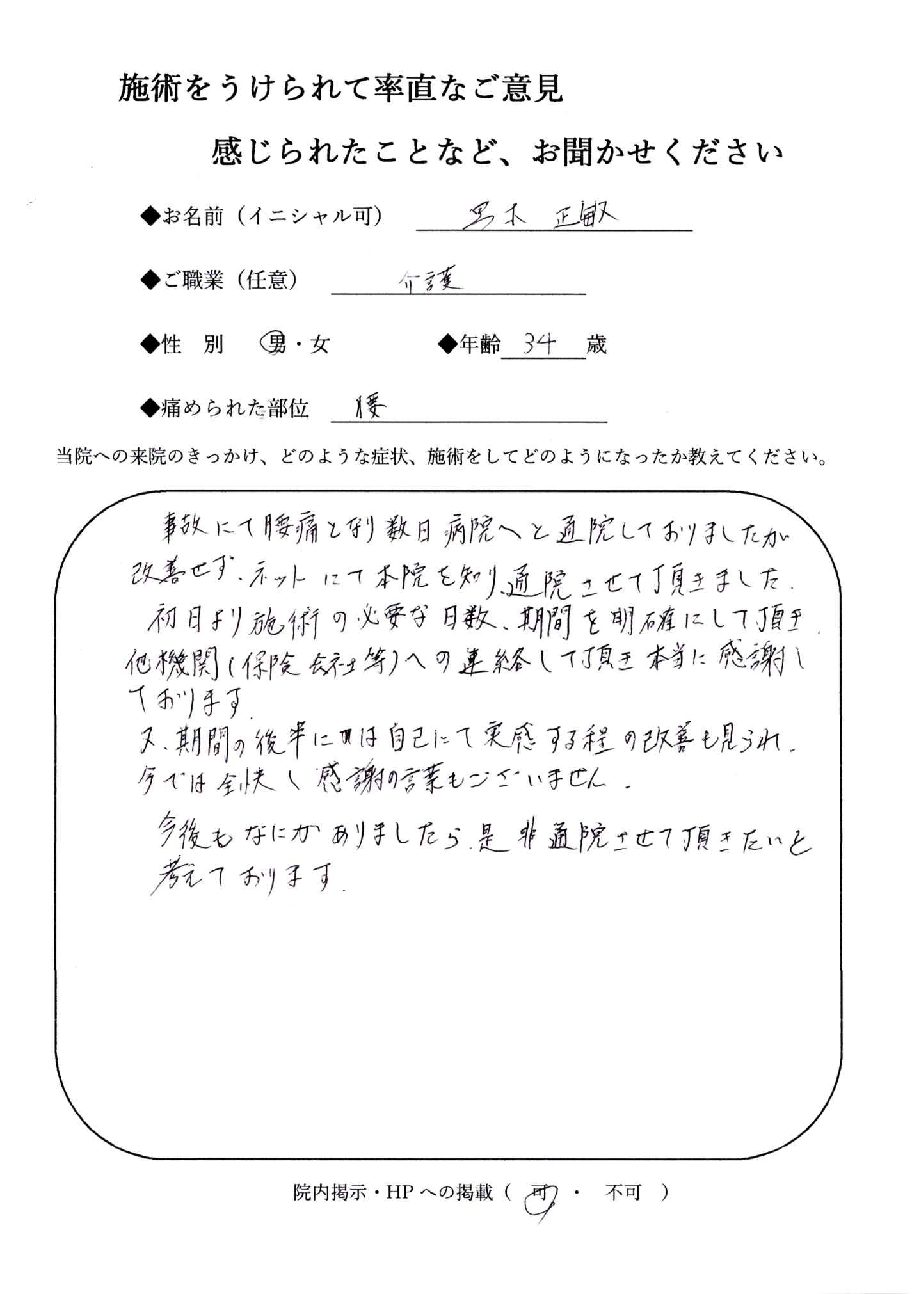 施術をうけられて率直なご意見
感じられたことなど、お聞かせください
◆お名前（イニシャル可） 黒木 正敏
◆ご職業（任意） 介護
◆性 別 男・女 ◆年齢 34 歳
◆痛められた部位 腰
当院への来院のきっかけ、どのような症状、施術をしてどのようになったか教えてください。
事故にて腰痛となり数日病院へと通院しておりましたが
改善せず、ネットにて本院を知り、通院させて頂きました.
初日より施術の必要な日数、期間を明確にして頂き.
他機関(保険会社等)への連絡して頂き本当に感謝し
ております.
又、期間の後半には自己にて実感する程の改善も見られ.
今では全快し感謝の言葉もございません.
今後もなにかありましたら是非通院させて頂きたいと
考えております.
院内掲示・HPへの掲載（ 可 ・ 不可 ）